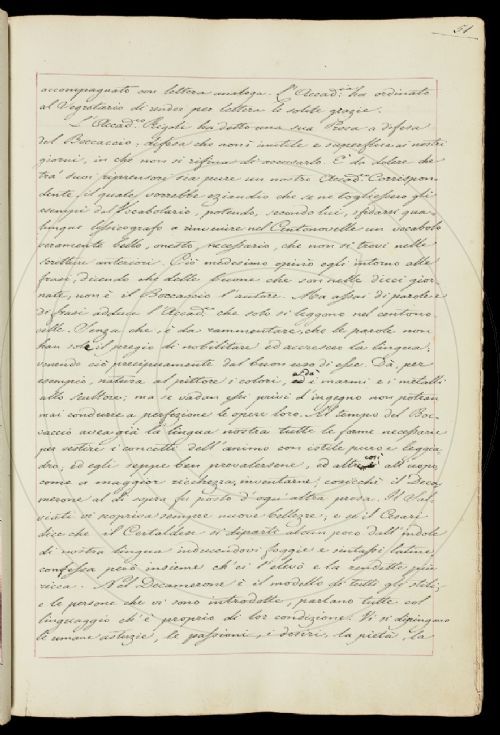 51
accompagnato con lettera analoga. L'Accad.ia ha ordinato
al Segretario di render per lettera le solite grazie.
L'Accad.co Rigoli ha detto una sua Prosa a difesa
del Boccaccio; difesa che non è inutile e superflua ai nostri
giorni, in che non si rifina di accusarlo. È da dolere che
tra' suoi riprensori sia pure un nostro Accad.co Corrispon-
dente, il quale vorrebbe eziandio che se ne togliessero gli
esempi dal Vocabolario, potendo, secondo lui, sfidarsi qua-
lunque lessicografo a rinvenire nel Centonovelle un vocabolo
veramente bello, onesto, necessario, che non si trovi nelle
scritture anteriori. Ciò medesimo opinò egli intorno alle
frasi, dicendo che delle buone che son nelle dieci gior-
nate, non è il Boccaccio l'autore. Ma assai di parole e
di frasi adduce l'Accad.co che solo si leggono nel centono-
velle. Senza che, è da rammentare, che le parole non
han sole il pregio di nobilitare ed accrescer la lingua,
venendo ciò precipuamente dal buon uso di esse. Dà, per
esempio, natura al pittore i colori, ed dà i marmi e i metalli
allo scultore; ma se vadan essi privi d'ingegno non potran
mai condurre a perfezione le opere loro. Al tempo del Boc-
caccio avea già la lingua nostra tutte le forme necessarie
per vestire i concetti dell'animo con istile puro e leggia-
dro; ed egli seppe ben prevalersene, ed altresì così all'uopo,
come a maggior ricchezza, inventarne; cosicchè il Deca-
merone al di sopra fu posto d'ogni altra prosa. Il Sal-
viati vi scopriva sempre nuove bellezze; e se il Cesari
dice che il Certaldese si dipartì alcun poco dall'indole
di nostra lingua inducendovi foggie e sintassi latine,
confessa però insieme ch'ei l'elevò e la rendette più
ricca. Nel Decamerone è il modello di tutti gli stili;
e le persone che vi sono introdotte, parlano tutte col
linguaggio ch'è proprio di lor condizione. Vi si dipingono
le umane astuzie, le passioni, i desiri, la pietà, la